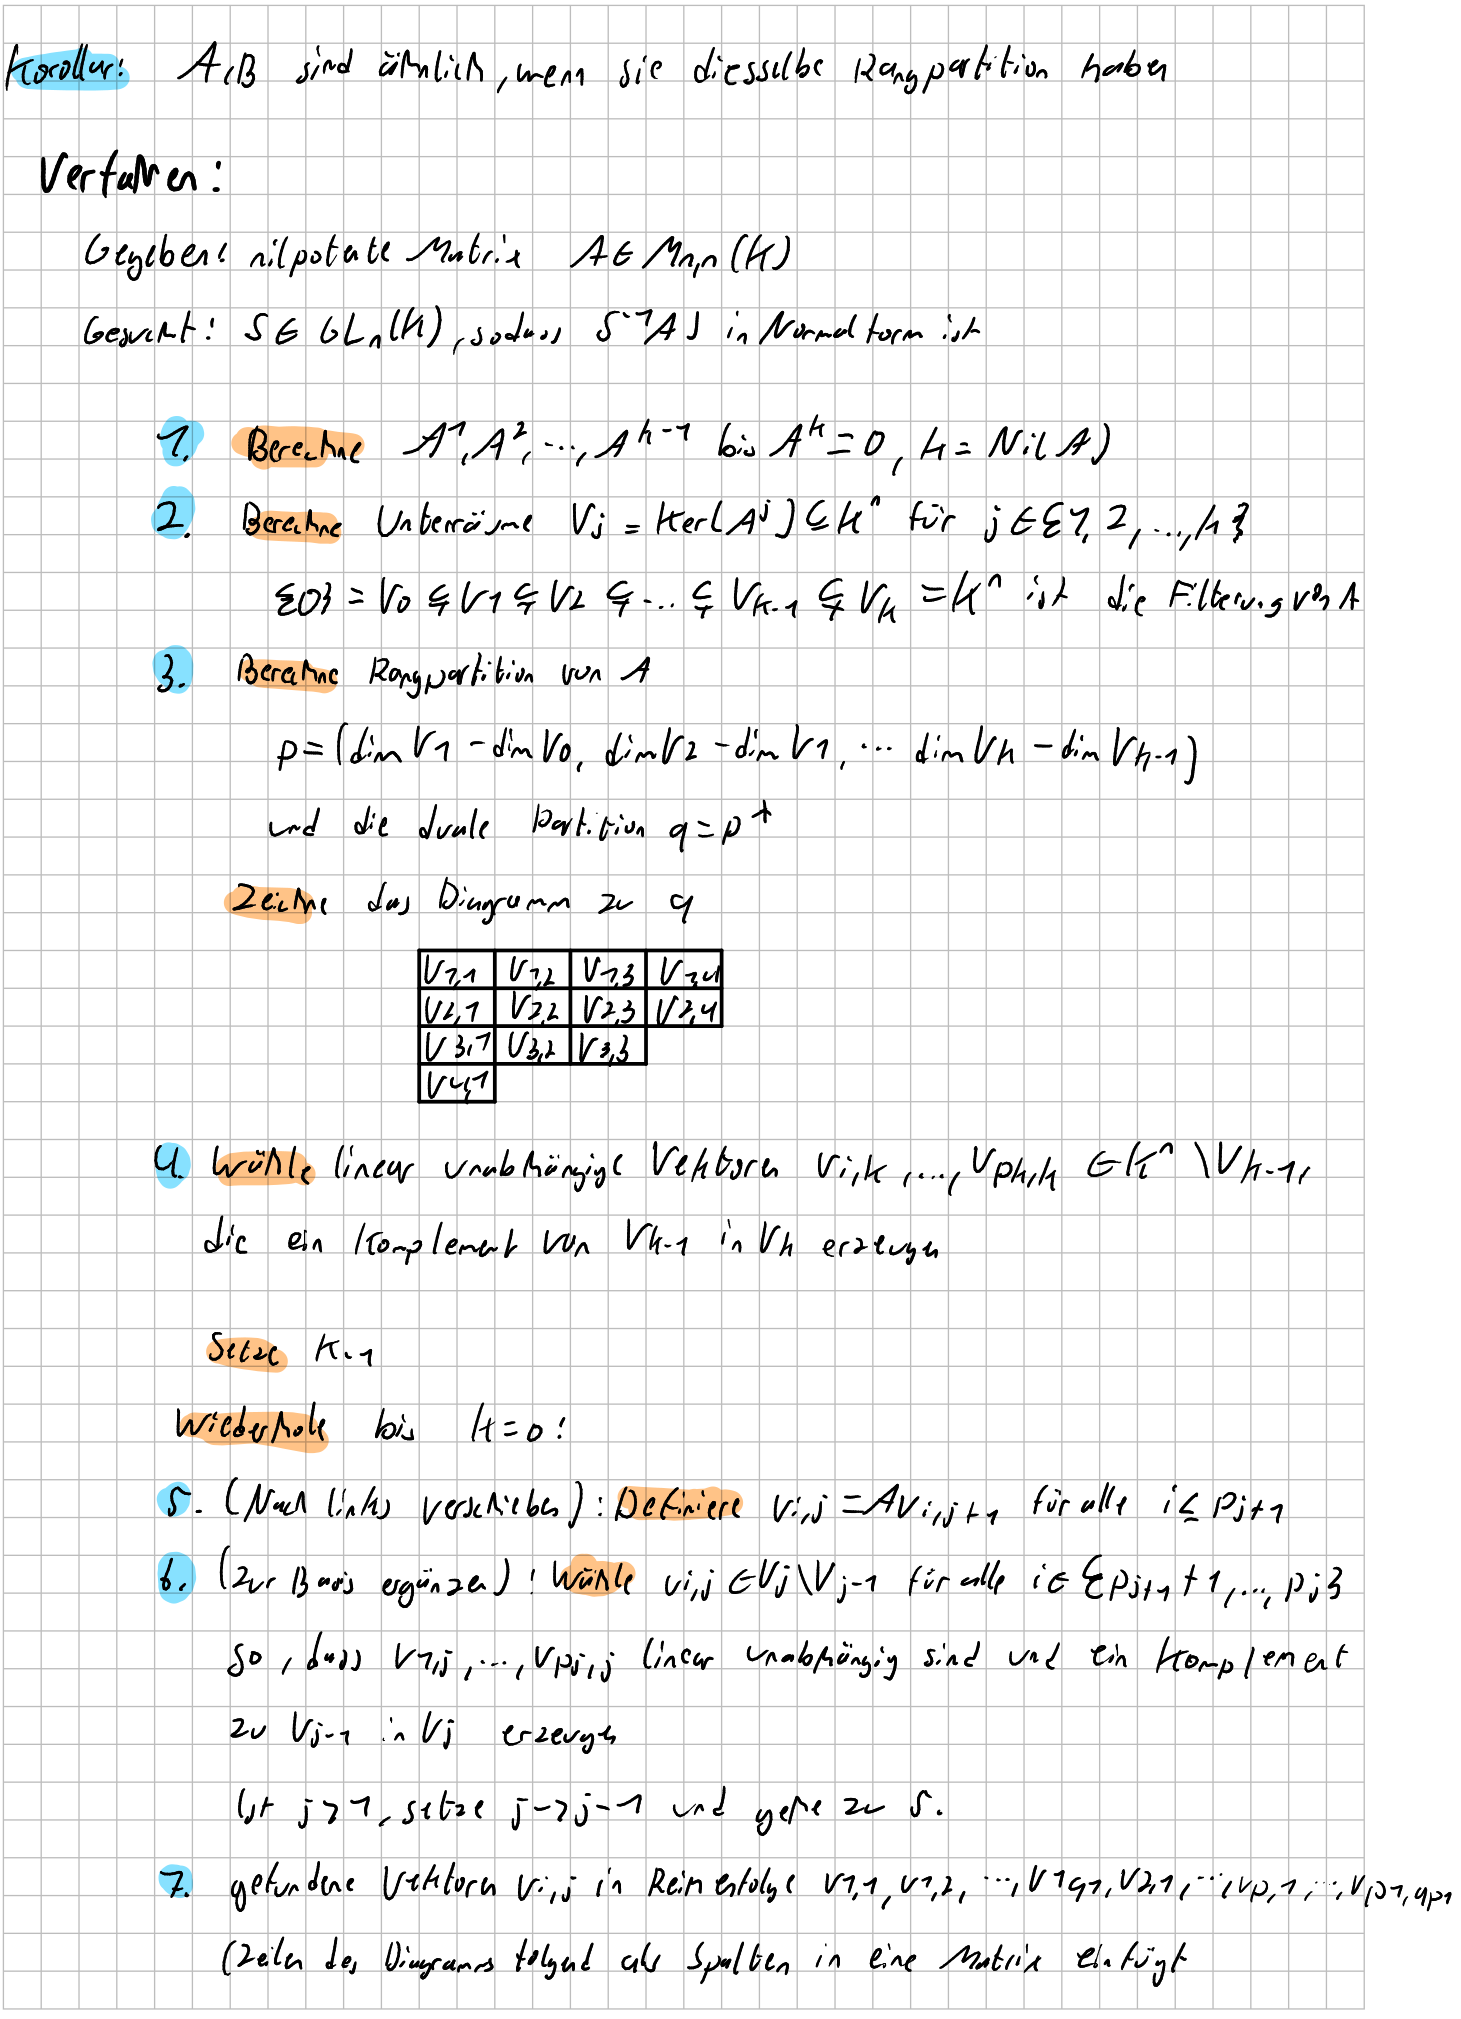 Korollar: A,B sind ähnlich, wenn sie diesselbe Rangpartition haben
Verfahren:
Gegeben: nilpotente Matrix A ∈ Mn,n (K)
Gesucht: S ∈ GLn(K), sodass S⁻¹AS in Normalform ist
1. Berechne A¹, A², ..., Aᵏ⁻¹ bis Aᵏ = 0, k = Nil(A)
2. Berechne Unterräume Vj = Ker(Aʲ) ⊆ Kⁿ für j ∈ {1, 2, ..., k}
{0} = V0 ⊊ V1 ⊊ V2 ⊊ ... ⊊ Vk-1 ⊊ Vk = Kⁿ ist die Filterung von A
3. Berechne Rangpartition von A
p = (dim V1 - dim V0, dim V2 - dim V1, ... dim Vk - dim Vk-1)
und die duale Partition q = p*
Zeichne das Diagramm zu q
V1,1 V1,2 V1,3 V1,4
V2,1 V2,2 V2,3 V2,4
V3,1 V3,2 V3,3
V4,1
4. Wähle linear unabhängige Vektoren vi,k, ..., vpk,k ∈ Kⁿ \ Vk-1,
die ein Komplement von Vk-1 in Vk erzeugen
Setze k-1
Wiederhole bis k=0:
5. (Nach links verschieben): Definiere vi,j = Avi,j+1 für alle i ≤ pj+1
6. (zur Basis ergänzen): Wähle vi,j ∈ Vj\Vj-1 für alle i ∈ {pj+1 + 1, ..., pj}
so, dass v1,j, ..., vpj,j linear unabhängig sind und ein Komplement
zu Vj-1 in Vj erzeugen
Ist j > 1, setze j -> j-1 und gehe zu 5.
7. gefundene Vektoren vi,j in Reihenfolge v1,1, v1,2, ..., v1q1, v2,1, ..., vp,1, ..., vp1,qp1
(Zeilen des Diagramms folgend als Spalten in eine Matrix einfügt